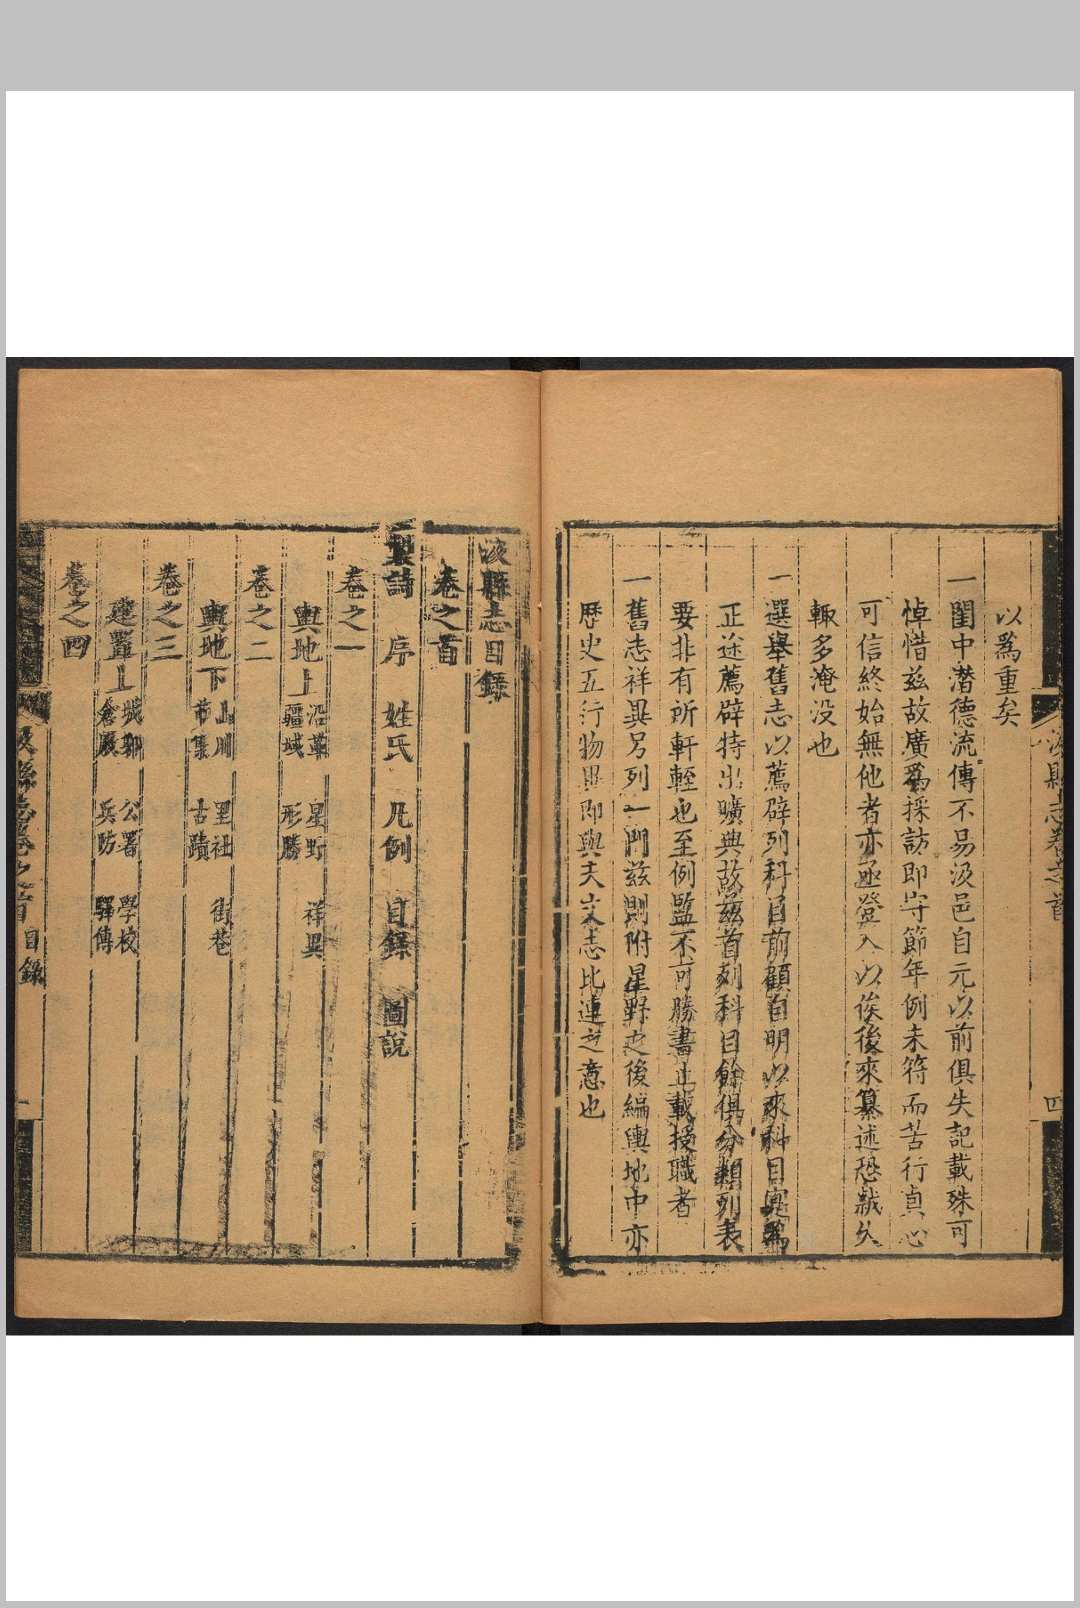 以為重矣
一閨中潛德流傳不易汲邑自元以前俱失記載殊可
悼惜茲故廣為採訪即守節年例未符而苦行貞心
可信終始無他者亦亟登入以俟後來纂述恐越久
輙多淹没也
一選舉舊志以薦辟列科目前顧自明以來科目寔為
正途薦辟特出曠典故茲首列科目餘俱分類列表
要非有所軒輊也至例監不可勝書止載授職者
一舊志祥異另列一門茲則附星野之後編輿地中亦
歷史五行物異即與天文志比連之意也
汲縣志卷之首
四
汲縣志目錄
卷之首
製詩 序 姓氏 凡例 目錄 圖說
卷之一
輿地上 沿革 疆域 星野 形勝 祥異
卷之二
輿地下 山川 市集 里社 古蹟 街巷
卷之三
建置上 城郭 倉廒 公署 兵防 學校 驛傳
卷之四
汲縣志卷之首 目錄
一